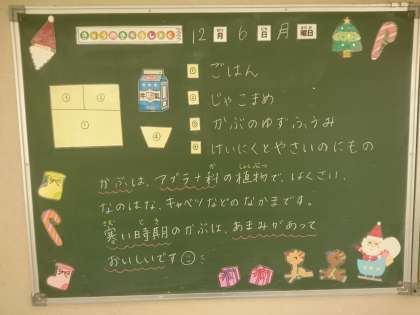 きょうのきゅうしょく 12月6日月曜日
① ごはん
② じゃこまめ
③ かぶのゆずふうみ
④ けいにくとやさいのにもの
③ ②
①
④
牛乳
か しょくぶつ
かぶは、アブラナ科の植物で、はくさい、
なのはな、キャベツなどのなかまです。
さむ じ き
寒い時期のかぶは、あまみがあって
おいしいです